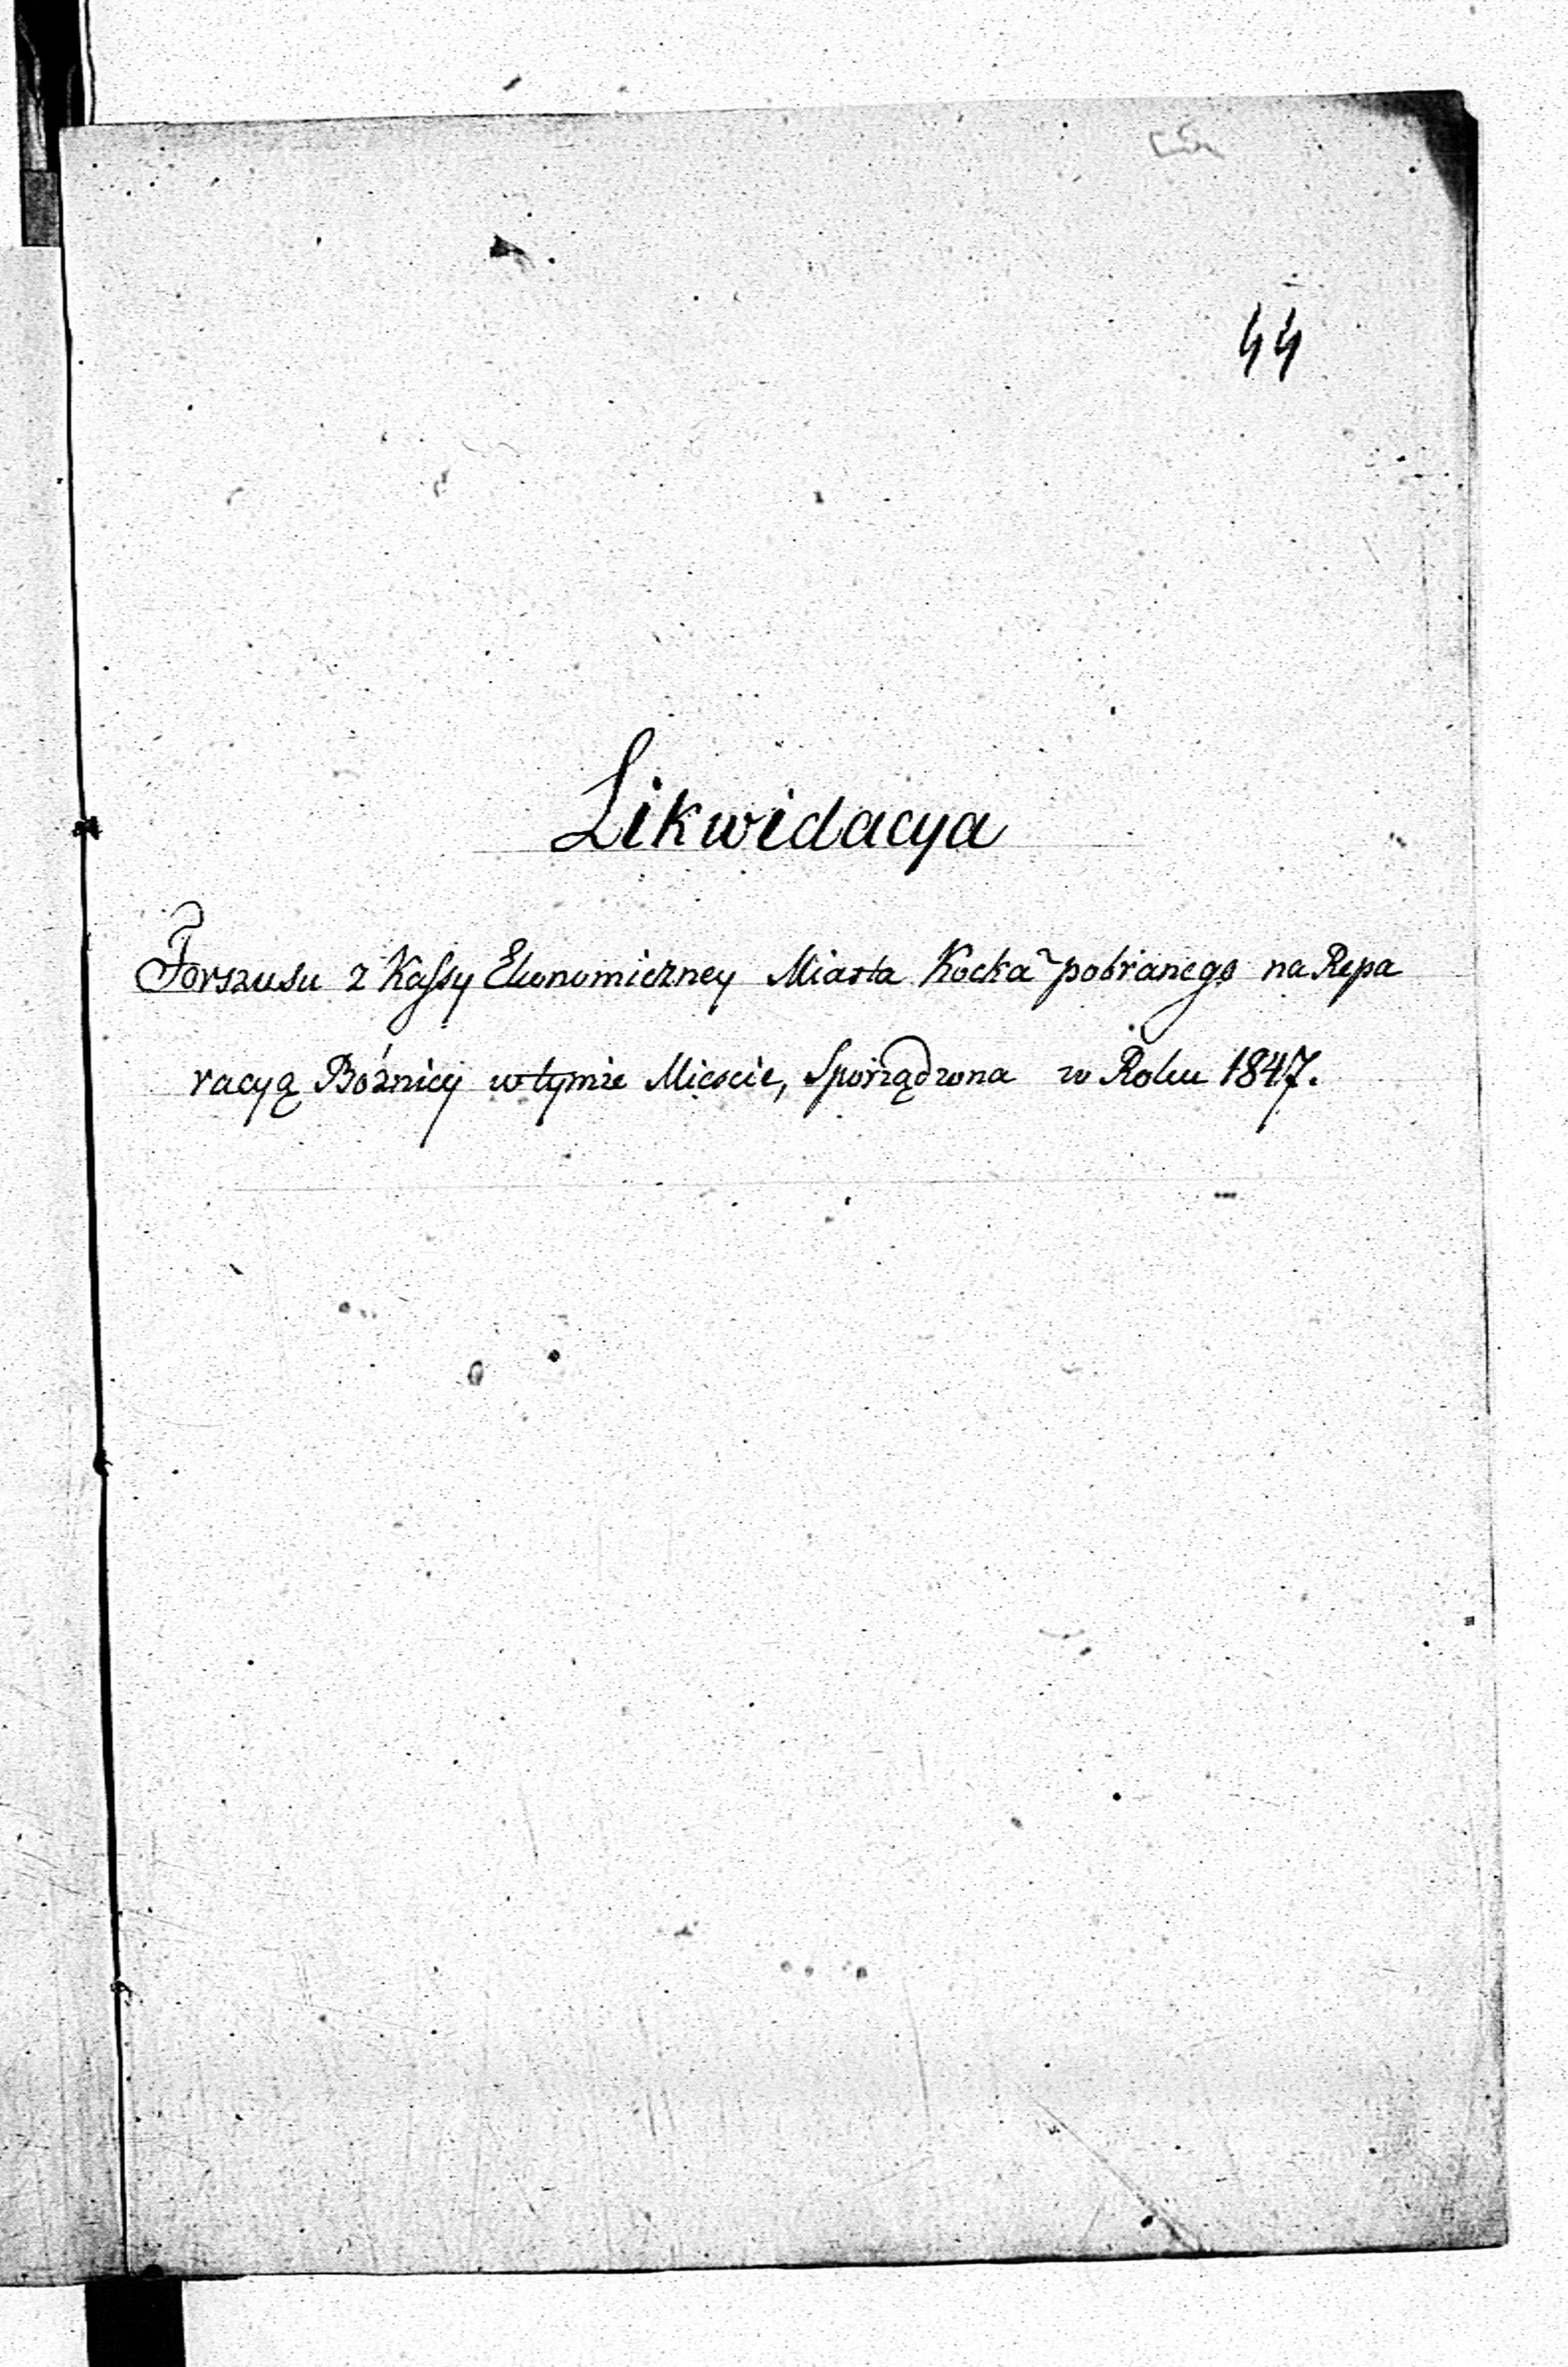 44
Likwidacya
Forszusu z Kassy Ekonomiczney Miasta Kocka pobranego na Repa
racyą Bóżnicy w tymże Mieście, Sporządzona w Roku 1847.